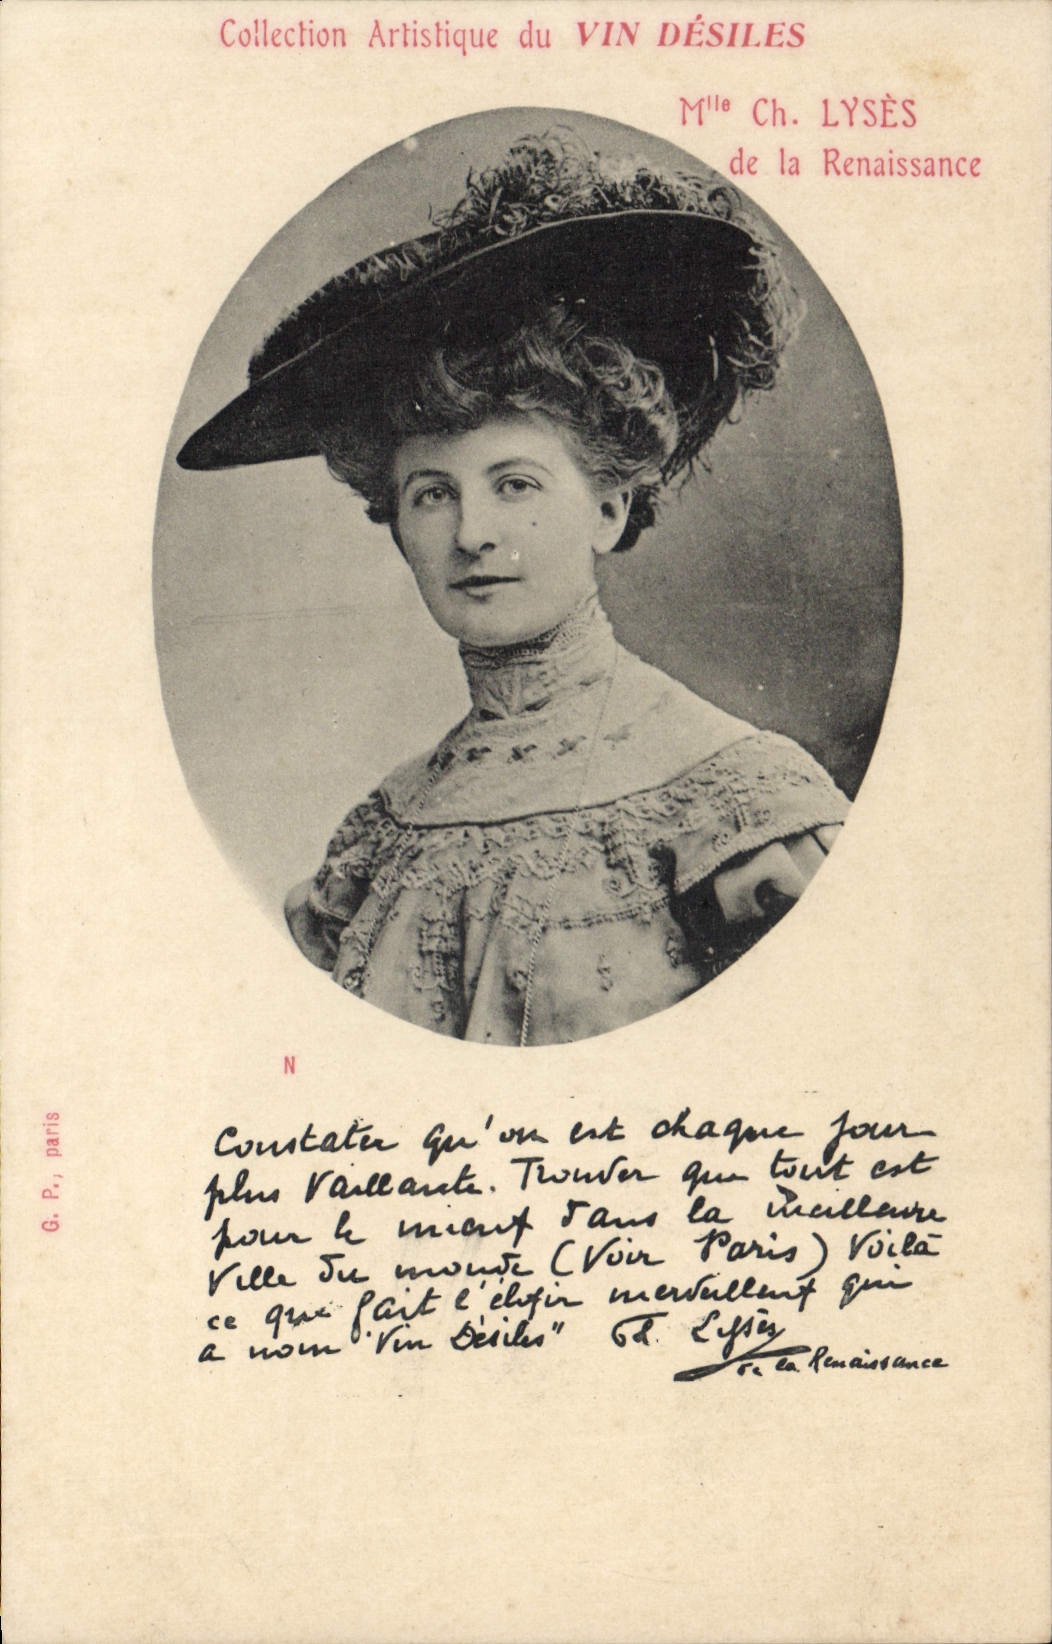 Collection Artistique du VIN DÉSILES
Mlle Ch. LYSÈS
de la Renaissance
N
G. P., paris
Constater qu'on est chaque jour
plus Vaillante. Trouver que tout est
pour le mieux dans la meilleure
Ville du monde (Voir Paris) Voilà
ce que fait l'élixir merveilleux qui
a nom "Vin Désiles" Ch. Lysès
de la Renaissance